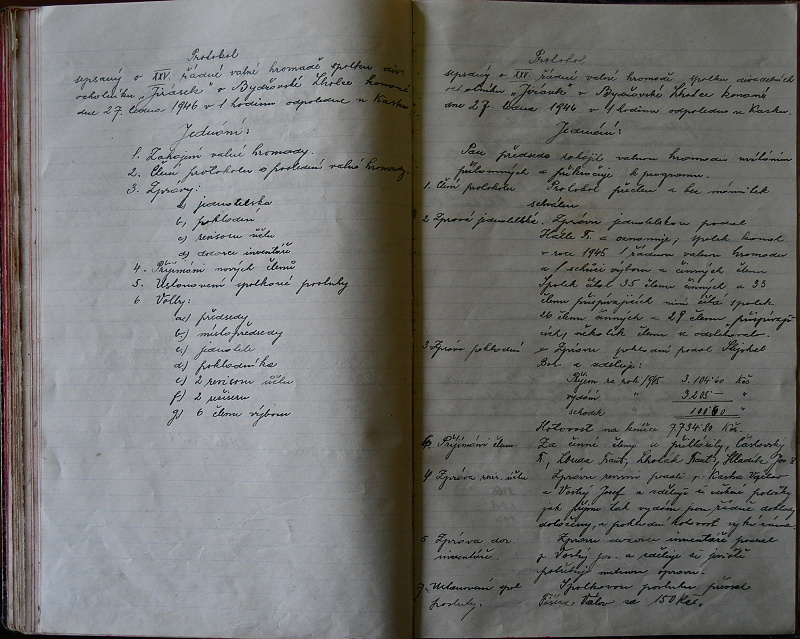 Protokol
sepsaný o XXV. řádné valné hromadě spolku div.
ochotníků „Jirásek" v Bydžovské Lhotce konané
dne 27. ledna 1946 v 1 hodinu odpoledne u Kašků
Jednání:
1. Zahájení valné hromady.
2. Čtení protokolu o poslední valné hromady.
3. Zprávy:
a) jednatelska
b) pokladní
c) revisorů účtů
d) dozorce inventáře
4. Přijímání nových členů
5. Ustanovení spolkové posluhy
6 Volby:
a) předsedy
b) místopředsedy
c) jednatele
d) pokladníka
e) 2 revisorů účtů
f) 2 režiserů
g) 6 členů výboru
Protokol
sepsaný o XXV. řádné valné hromadě spolku divadelních
ochotníků „Jirásek" v Bydžovské Lhotce konané
dne 27. ledna 1946 v 1 hodinu odpoledne u Kašků.
Jednání:
Pan předseda zahájil valnou hromadu uvítáním
přítomných a přikročuje k programu.
1. Čtení protokolu Protokol přečten a bez námitek
schválen
2 Zpráva jednatelská. Zprávu jednatelskou podal
Fr. a oznamuje, spolek konal
v roce 1945 1 řádnou valnou hromadu
a 1 schůzi výboru a činných členů
Spolek čítal 35 členů činných a 33
členů přispívajících nyní čítá spolek
26 členů činných a 29 členů přispívají
cích, několik členů se odstěhovalo.
3 Zpráva pokladní Zprávu pokladní podal
Boh. a sděluje:
Příjem za rok 1945 3.104·60 Kčs
vydání " 3.205·— "
schodek " 100·60 "
Hotovost na konci 7.734·80 Kčs.
6. Přijímání členů Za činné členy se přihlásily,
Fr., Fant, Fant, Jar.
4 Zpráva rev. účtů Zprávu revisní podali p. Kaška
a Josef a sdělují že účetní položky
jak příjmů tak vydání jsou řádně doklady
doloženy, a pokladní hotovost
5 Zpráva doz. Zprávu dozorce inventáře podal
inventáře. p. Jos. a sděluje že jeviště
potřebuje nutnou opravu.
7. Ustanovení spol Spolkovou posluhu převzal
posluhy. Václav za 150 Kčs.